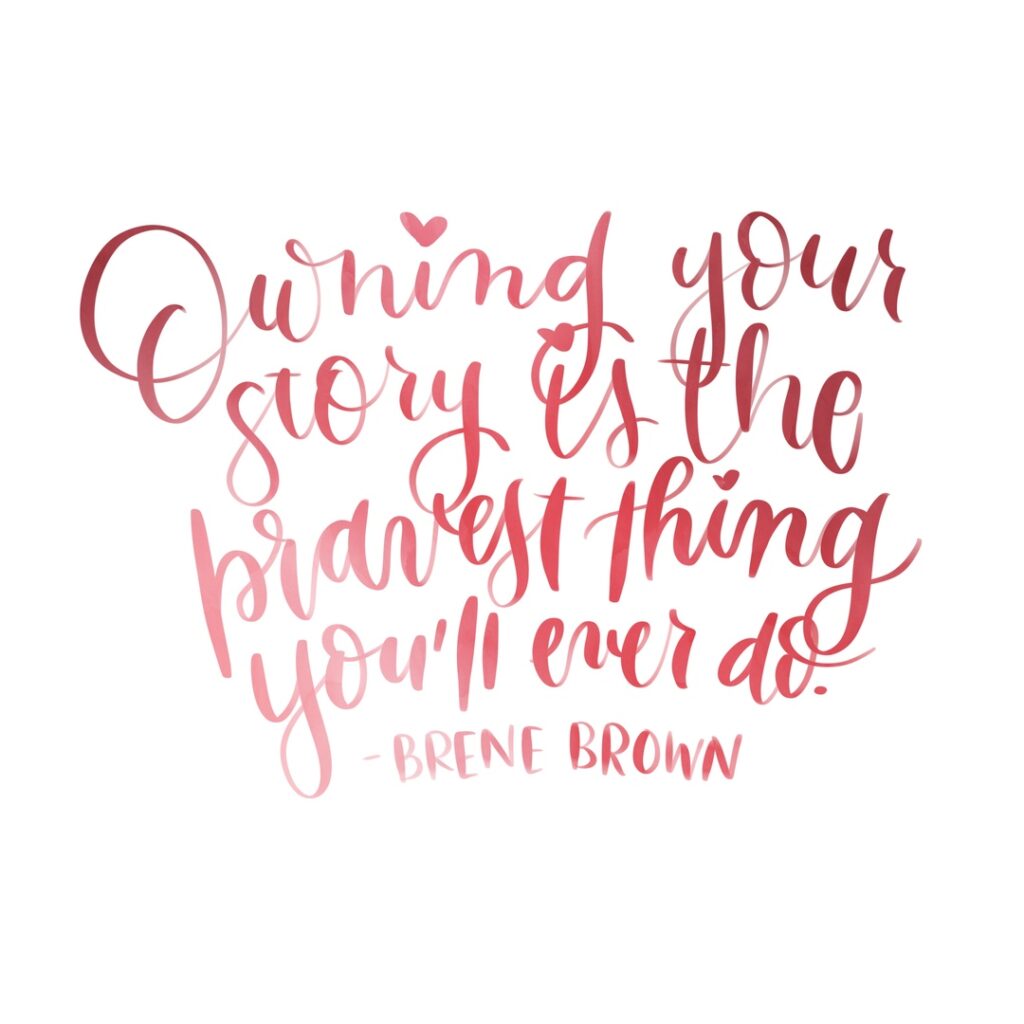 Owning your
story is the
bravest thing
you'll ever do.
- BRENE BROWN